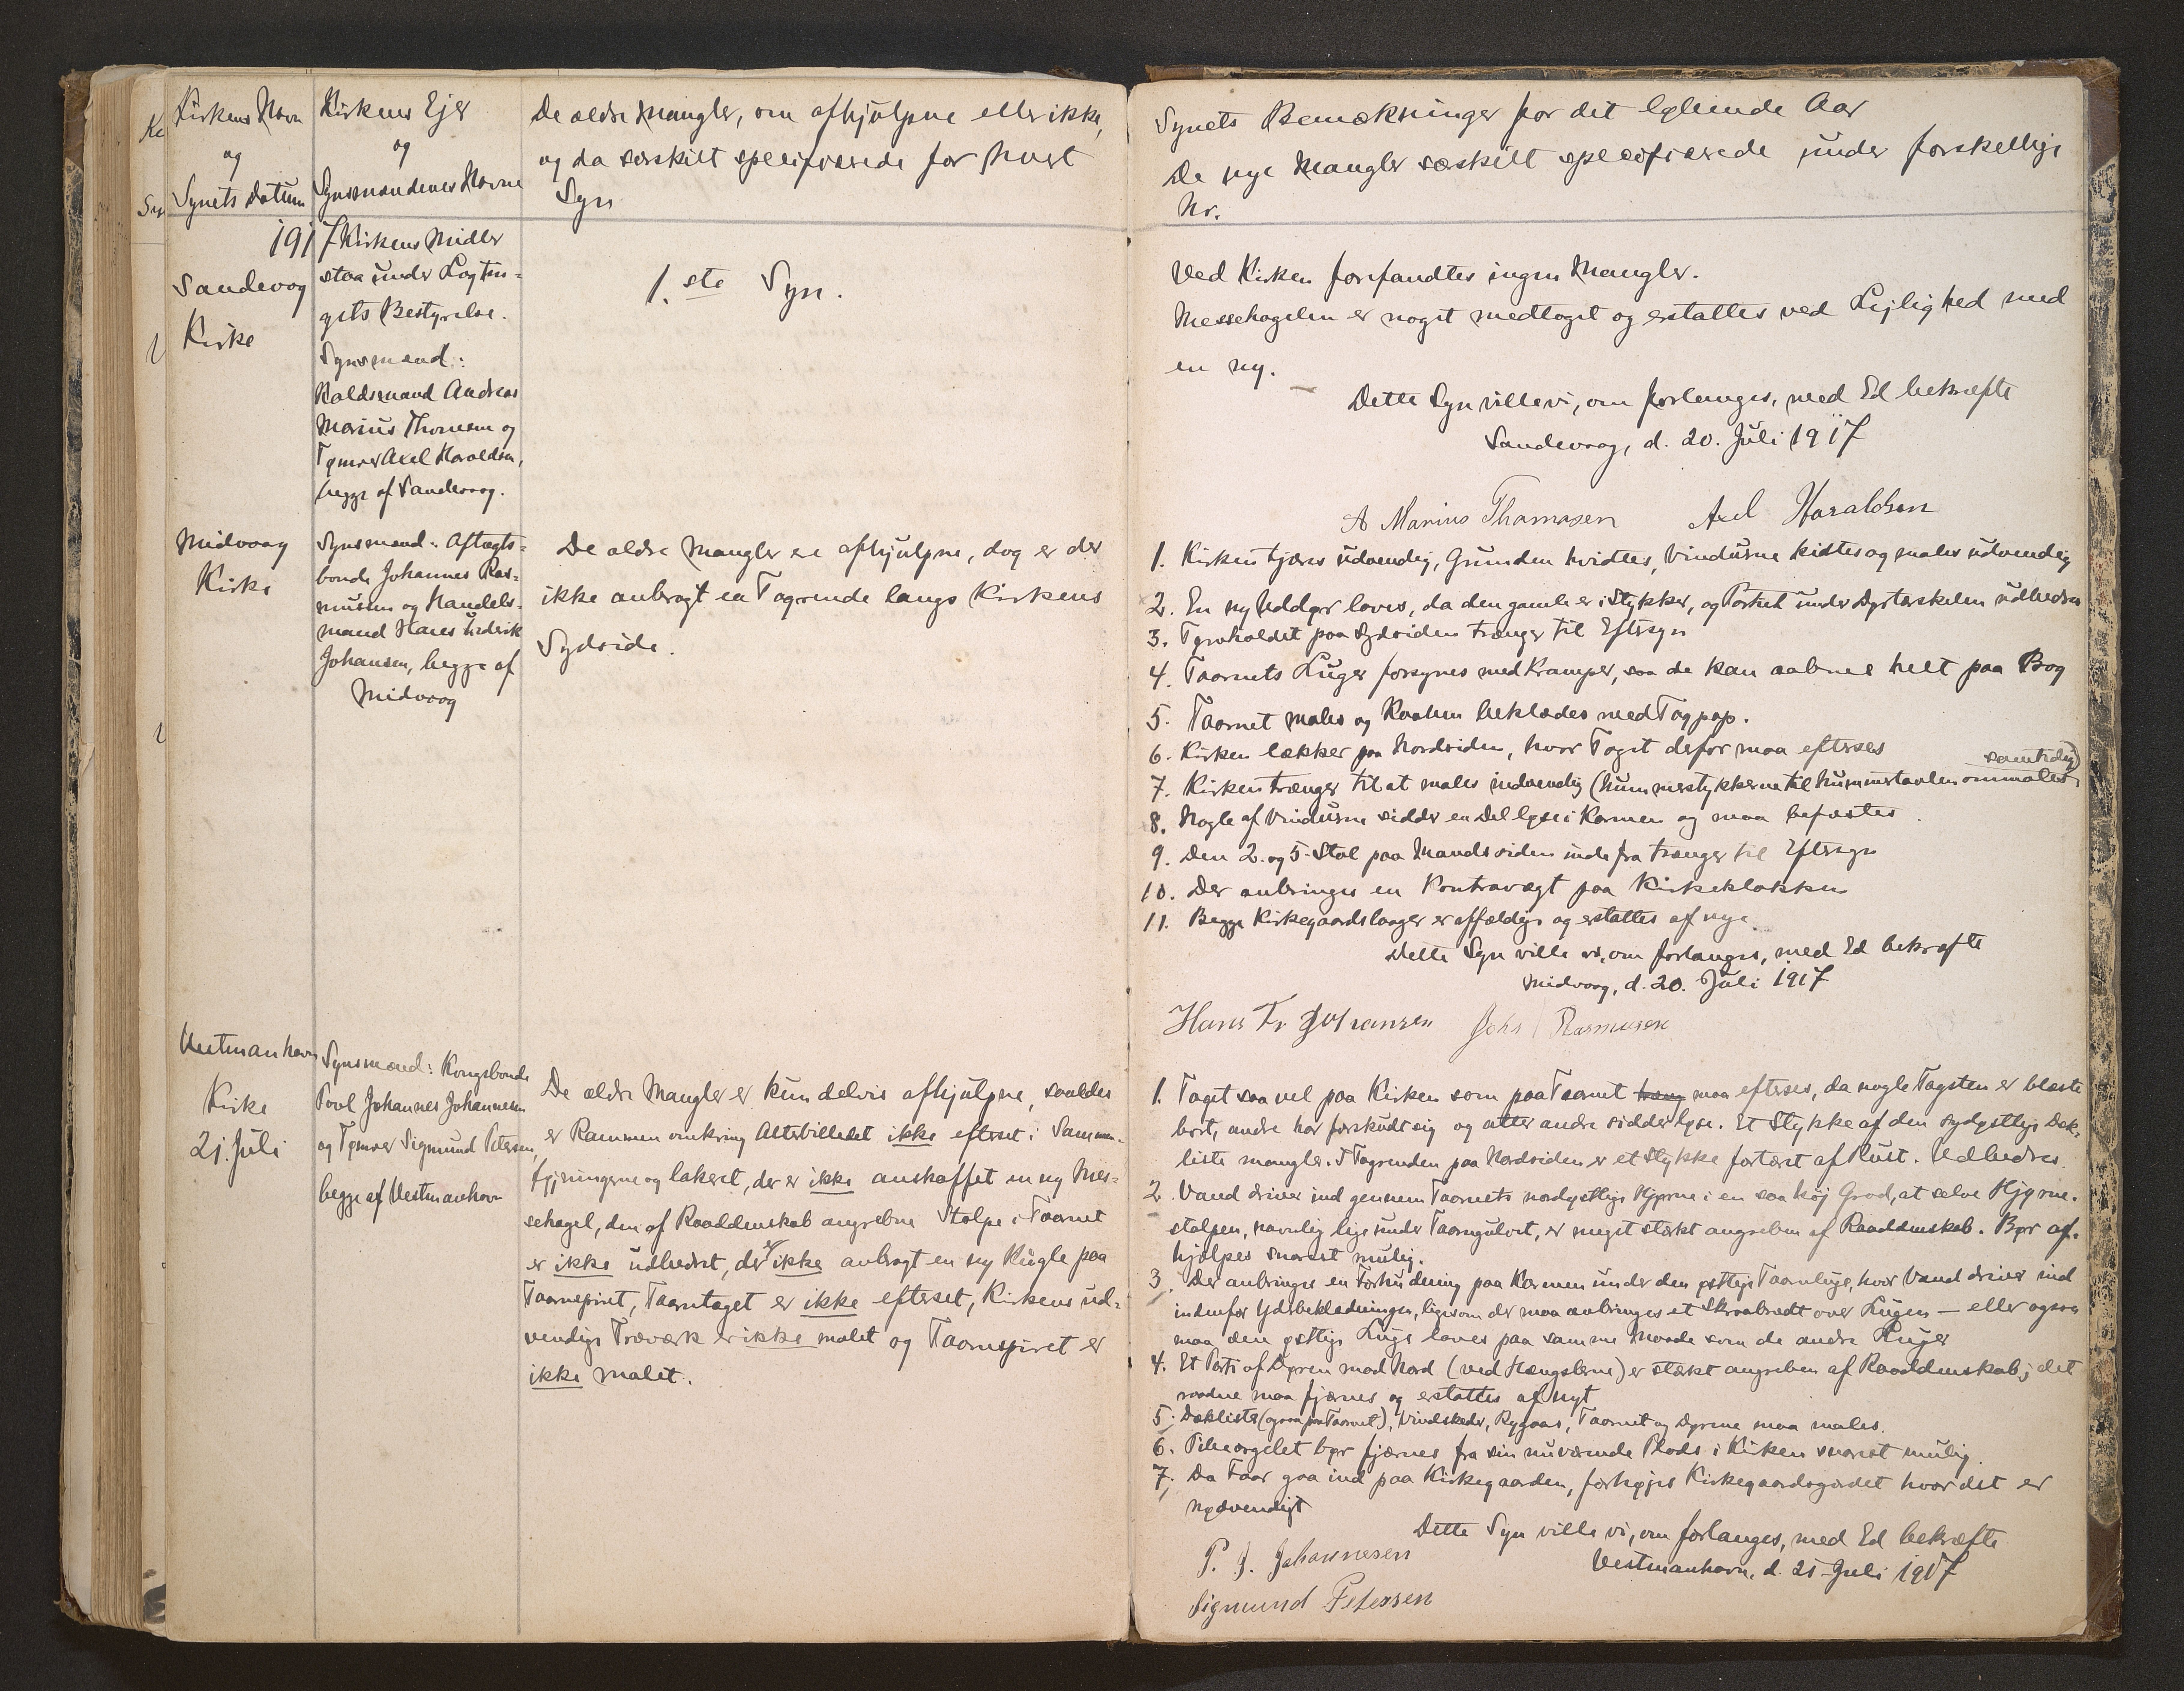 Kirkens Navn
og
Synets Datum
Kirkens Ejer
og
Synsmændenes Navne
De ældre Mangler, om afhjulpne eller ikke,
og da særskilt specificerede for hvert
Syn
1917
Sandevog
Kirke
Kirkens Midler
staa under Lagtin-
gets Bestyrelse.
Synsmænd:
Raadsmand Andreas
Marius Thomsen og
Tømrer Axel Haraldsen,
begge af Sandevaag.
1.ste Syn.
Midvaag
Kirke
Synsmænd: Aftægts-
bonde Johannes Ras-
mussen og Handels-
mand Hans Fredrik
Johansen, begge af
Midvaag
De ældre Mangler ere afhjulpne, dog er der
ikke anbragt en Tagrende langs Kirkens
Sydside.
Vestmanhavn
Kirke
21. Juli
Synsmænd: Kongsbonde
Poul Johannes Johannesen
og Tømrer Sigmund Petersen,
begge af Vestmanhavn
De ældre Mangler er kun delvis afhjulpne, saaledes
er Rammen omkring Alterbilledet ikke efterset i Sammen-
føjningerne og lakeret, der er ikke anskaffet en ny Mes-
sehagel, den af Raaddenskab angrebne Stolpe i Taarnet
er ikke udbedret, der er ikke anbragt en ny Kugle paa
Taarnspiret, Taarntaget er ikke efterset, Kirkens ud-
vendige Træværk er ikke malet og Taarnspiret er
ikke malet.
Synets Bemærkninger for det løbende Aar
De nye Mangler særskilt specificerede under forskellige
Nr.
Ved Kirken forefandtes ingen Mangler.
Messehagelen er noget medtaget og erstattes ved Lejlighed med
en ny.
Dette Syn ville vi, om forlanges, med Ed bekræfte
Sandevaag, d. 20. Juli 1917
A Marius Thomasen Axel Haraldsen
1. Kirken tjæres udvendig, Grunden hvidtes, Vinduerne kittes og males udvendig
2. En ny Uddør laves, da den gamle er i Stykker, og Partiet under Dørtærskelen udbedres
3. Tørvholdet paa Sydsiden trænger til Eftersyn
4. Taarnets Luger forsynes med Kramper, saa de kan aabnes helt paa Bag
5. Taarnet males og Raaben beklædes med Tagpap.
6. Kirken lækker paa Nordsiden, hvor Taget derfor maa efterses
7. Kirken trænger til at males indvendig (Nummerstykkerne til Nummertavlen ommales samtidig)
8. Nogle af Vinduerne sidder en Del løse i Karmen og maa befæstes.
9. Den 2. og 5. Stol paa Mandssiden inde fra trænger til Eftersyn
10. Der anbringes en Kontravægt paa Kirkeklokken
11. Begge Kirkegaardslaager er affældige og erstattes af nye.
Dette Syn ville vi, om forlanges, med Ed bekræfte
Midvaag, d. 20. Juli 1917
Hans Fr Johansen Johs Rasmusen
1. Taget saa vel paa Kirken som paa Taarnet træng maa efterses, da nogle Tagsten er blæste
bort, andre har forskudt sig og atter andre sidder løse. Et Stykke af den sydøstlige Dæk-
liste mangler. I Tagrenden paa Nordsiden er et Stykke fortæret af Rust. Udbedres.
2. Vand driver ind gennem Taarnets nordøstlige Hjørne i en saa høj Grad, at selve Hjørne-
stolpen, navnlig lige under Taarngulvet, er meget stærkt angreben af Raaddenskab. Bør af-
hjælpes snarest mulig.
3. Der anbringes en Forhudning paa Karmen under den østlige Taarnluge, hvor Vand driver ind
indenfor Yderbeklædningen, ligesom der maa anbringes et Skraabrædt over Lugen — eller ogsaa
maa den østlige Luge laves paa samme Maade som de andre Luger
4. Et Parti af Døren mod Nord (ved Hængslerne) er stærkt angreben af Raaddenskab; det
raadne maa fjærnes og erstattes af nyt
5. Dæklister (ogsaa paa Taarnet), Vindskeder, Rygaas, Taarnet og Dørene maa males.
6. Pibeorgelet bør fjærnes fra sin nuværende Plads i Kirken snarest mulig.
7. Da Faar gaa ind paa Kirkegaarden, forhøjes Kirkegaardsgærdet hvor det er
nødvendigt
Dette Syn ville vi, om forlanges, med Ed bekræfte
Vestmanhavn, d. 21. Juli 1917
P. J. Johannesen
Sigmund Petersen